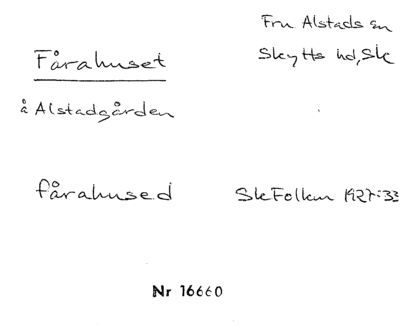 Fru Alstads sn
Skytts hd, Sk
Fårahuset
å Alstadgården
fårahused
SkFolkm 1927:33
Nr 16660